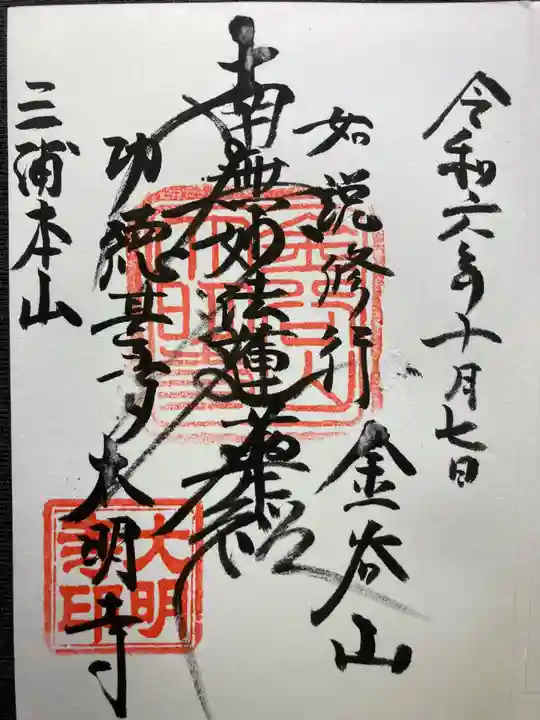 令和六年十月七日
如説修行 金谷山
南無妙法蓮華経
功徳甚多 大明寺
三浦本山
金谷山
大明寺
大明寺印